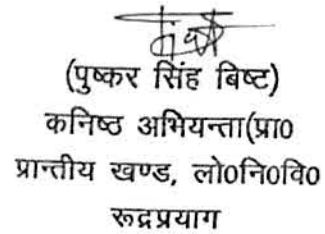 (पुष्कर सिंह बिष्ट)
कनिष्ठ अभियन्ता(प्रा०
प्रान्तीय खण्ड, लो०नि०वि०
रूद्रप्रयाग